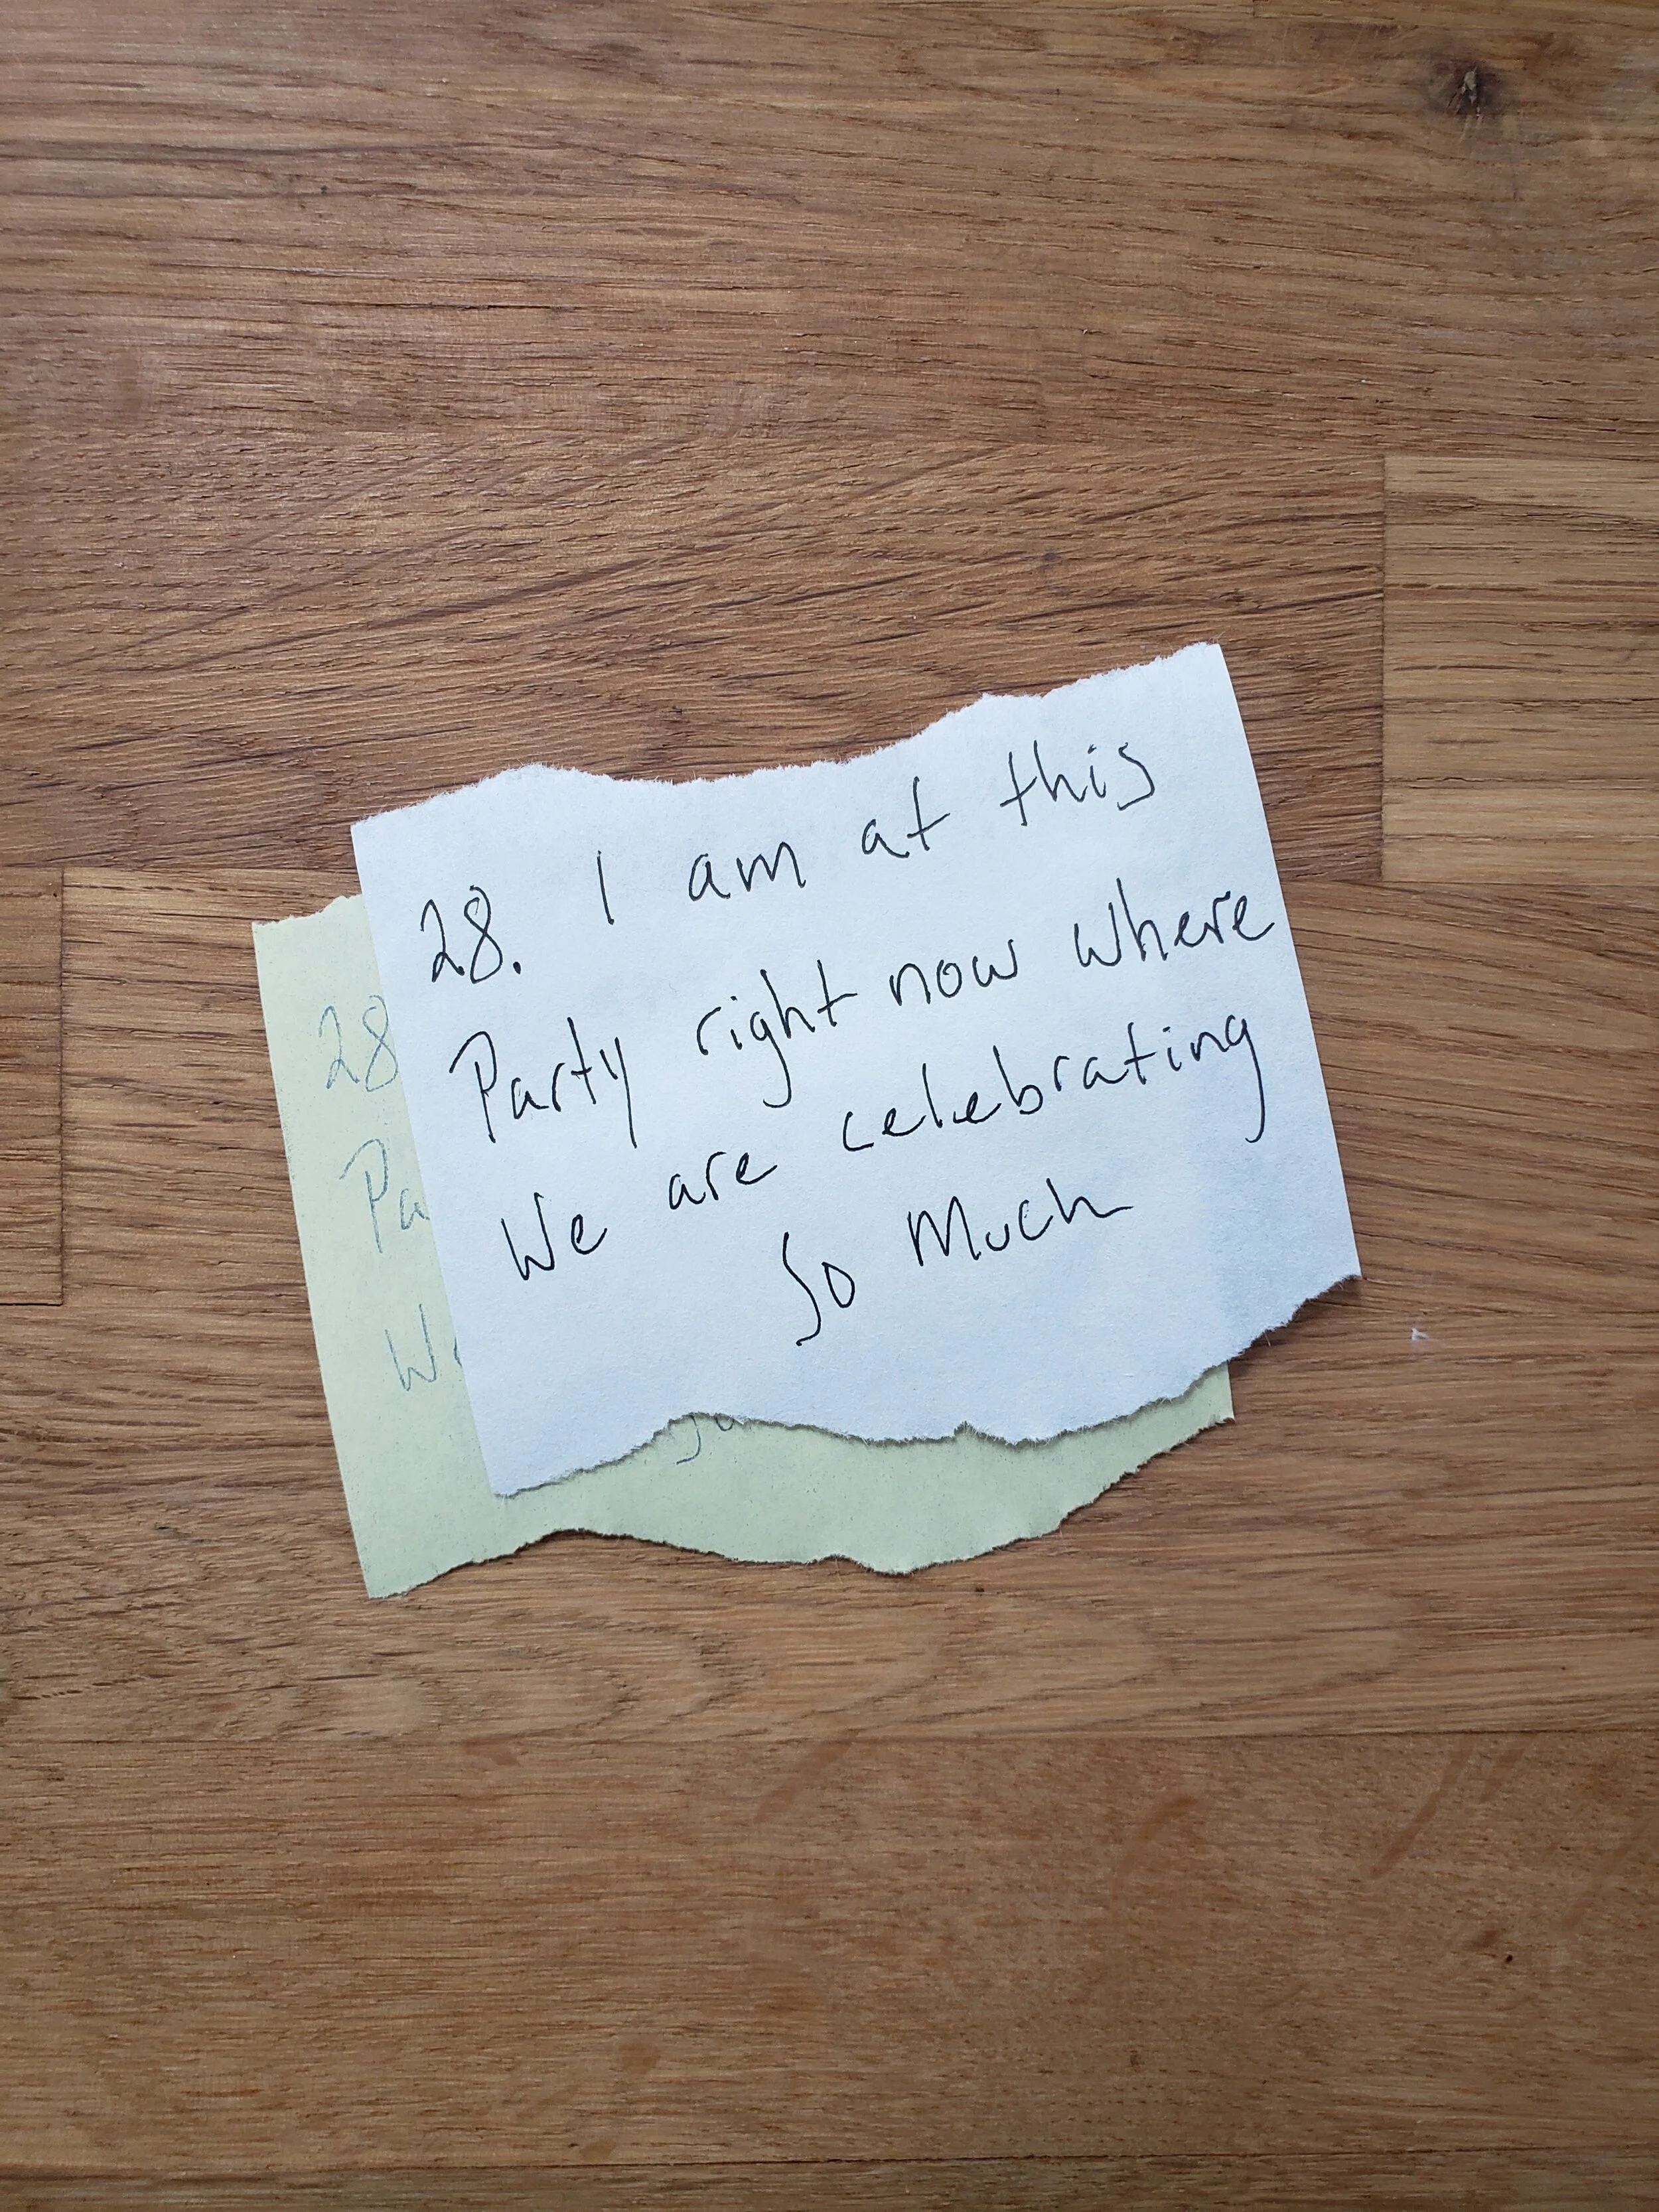 28. I am at this
Party right now where
We are celebrating
So Much
28
Pa
We
So